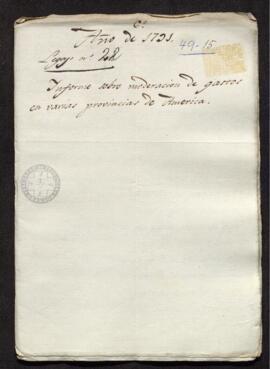 6.
Año de 1791.
49-15
Legajo nº 202
Informe sobre moderacion de gastos
en varias provincias de America.